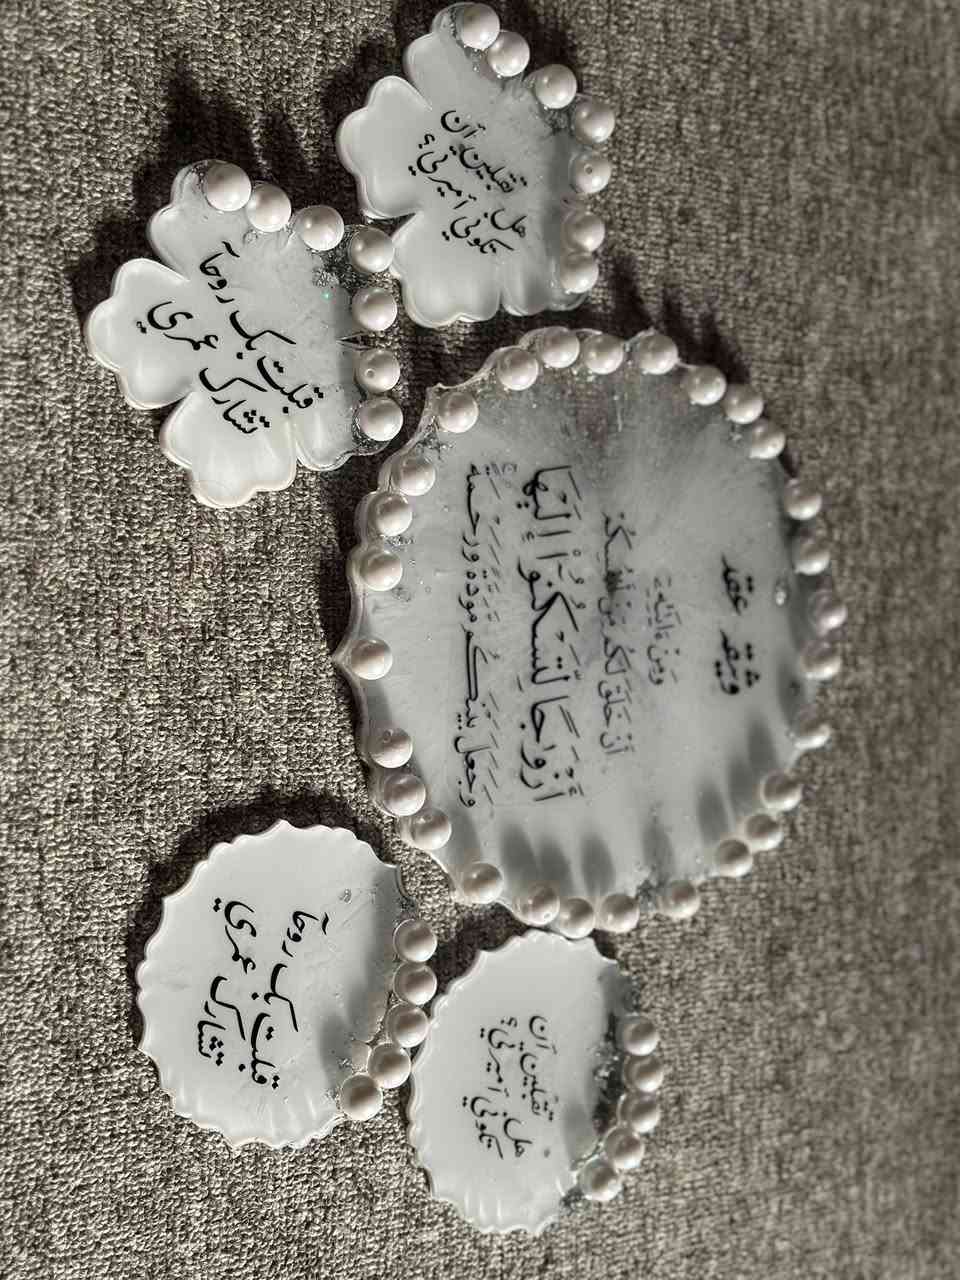 هل تقبلين آن
تكوني آميرتي؟
قبلت بک روحآ
تشارک عمري
وثيقه عقد
وَمِنْ ءَايَٰتِهِۦٓ
أَنْ خَلَقَ لَكُم مِّنْ أَنفُسِكُمْ
أَزْوَٰجًا لِّتَسْكُنُوٓا۟ إِلَيْهَا
وَجَعَلَ بَيْنَكُم مَّوَدَّةً وَرَحْمَةً
قبلت بک روحآ
تشارک عمري
هل تقبلين آن
تكوني آميرتي؟